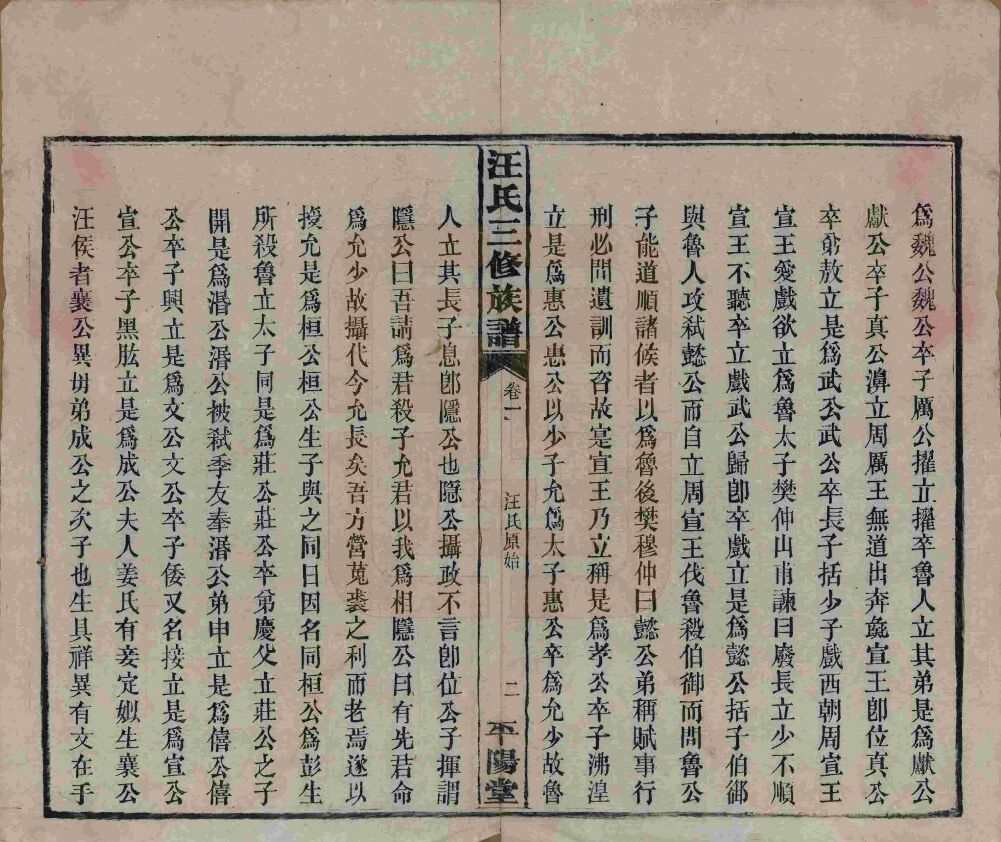 爲魏公魏公卒子厲公擢立擢卒魯人立其弟是爲獻公
獻公卒子真公濞立周厲王無道出奔彘宣王卽位真公
卒弟敖立是爲武公武公卒長子括少子戲西朝周宣王
宣王愛戲欲立爲魯太子樊仲山甫諫曰廢長立少不順
宣王不聽卒立戲武公歸卽卒戲立是爲懿公括子伯御
與魯人攻弑懿公而自立周宣王伐魯殺伯御而問魯公
子能道順諸侯者以爲魯後樊穆仲曰懿公弟稱賦事行
刑必問遺訓而咨故寔宣王乃立稱是爲孝公卒子沸湟
立是爲惠公惠公以少子允爲太子惠公卒爲允少故魯
汪氏三修族譜
卷一
汪氏原始
二
平陽堂
人立其長子息卽隱公也隱公攝政不言卽位公子揮謂
隱公曰吾請爲君殺子允君以我爲相隱公曰有先君命
爲允少故攝代今允長矣吾方營莵裘之利而老焉遂以
授允是爲桓公桓公生子與之同日因名同桓公爲彭生
所殺魯立太子同是爲莊公莊公卒弟慶父立莊公之子
開是爲湣公湣公被弑季友奉湣公弟申立是爲僖公僖
公卒子興立是爲文公文公卒子倭又名接立是爲宣公
宣公卒子黑肱立是爲成公夫人姜氏有妾定姒生襄公
汪侯者襄公異毋弟成公之次子也生具祥異有文在手